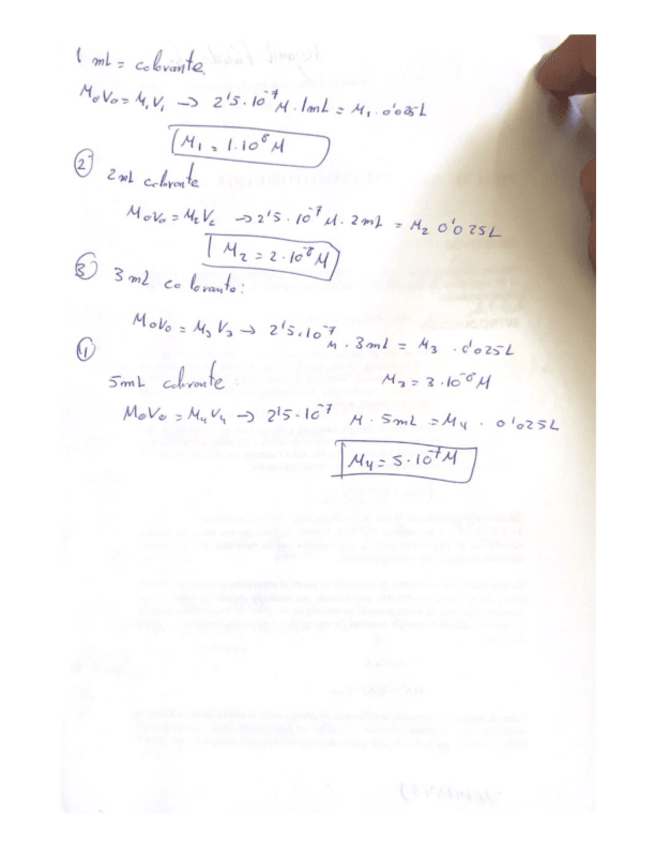 1 mL = colorante.
M₀V₀ = M₁V₁ → 2'5·10⁻⁷ M · 1mL = M₁ · 0'025L
M₁ = 1·10⁻⁸ M
② 2 mL colorante
M₀V₀ = M₂V₂ → 2'5·10⁻⁷ M · 2mL = M₂ 0'025L
M₂ = 2·10⁻⁸ M
③ 3 mL colorante:
M₀V₀ = M₃V₃ → 2'5·10⁻⁷ M · 3mL = M₃ · 0'025L
M₃ = 3·10⁻⁸ M
5mL colorante:
M₀V₀ = M₄V₄ → 2'5·10⁻⁷ M · 5mL = M₄ · 0'025L
M₄ = 5·10⁻⁷ M